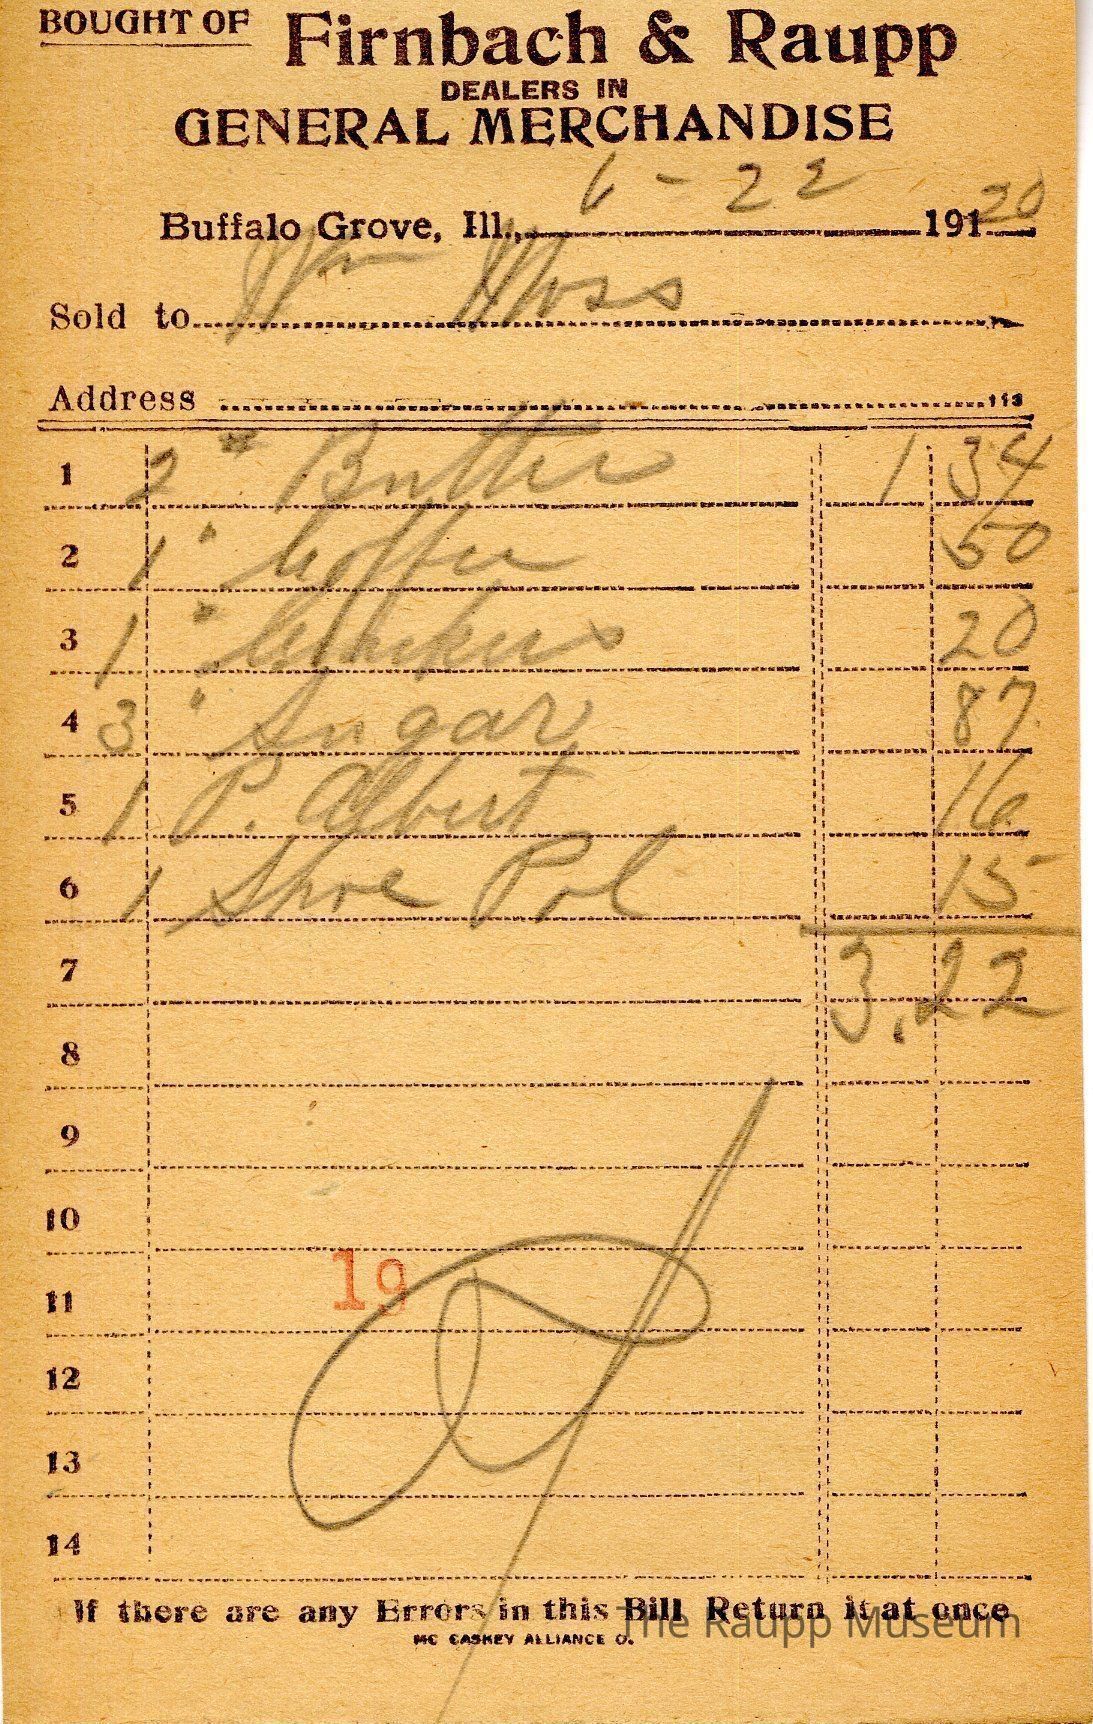 BOUGHT OF Firnbach & Raupp
DEALERS IN
GENERAL MERCHANDISE
Buffalo Grove, Ill., 6-22 191 20
Sold to Wm Moss
Address 113
1 2 " Butter 1 34
2 1 " Coffee 50
3 1 " Crackers 20
4 3 " Sugar 87
5 1 P. Albert 16
6 1 Shoe Pol 15
7 3.22
8
9
10
19
11
12
13
14
If there are any Errors in this Bill Return it at once
MC CASKEY ALLIANCE O.
The Raupp Museum